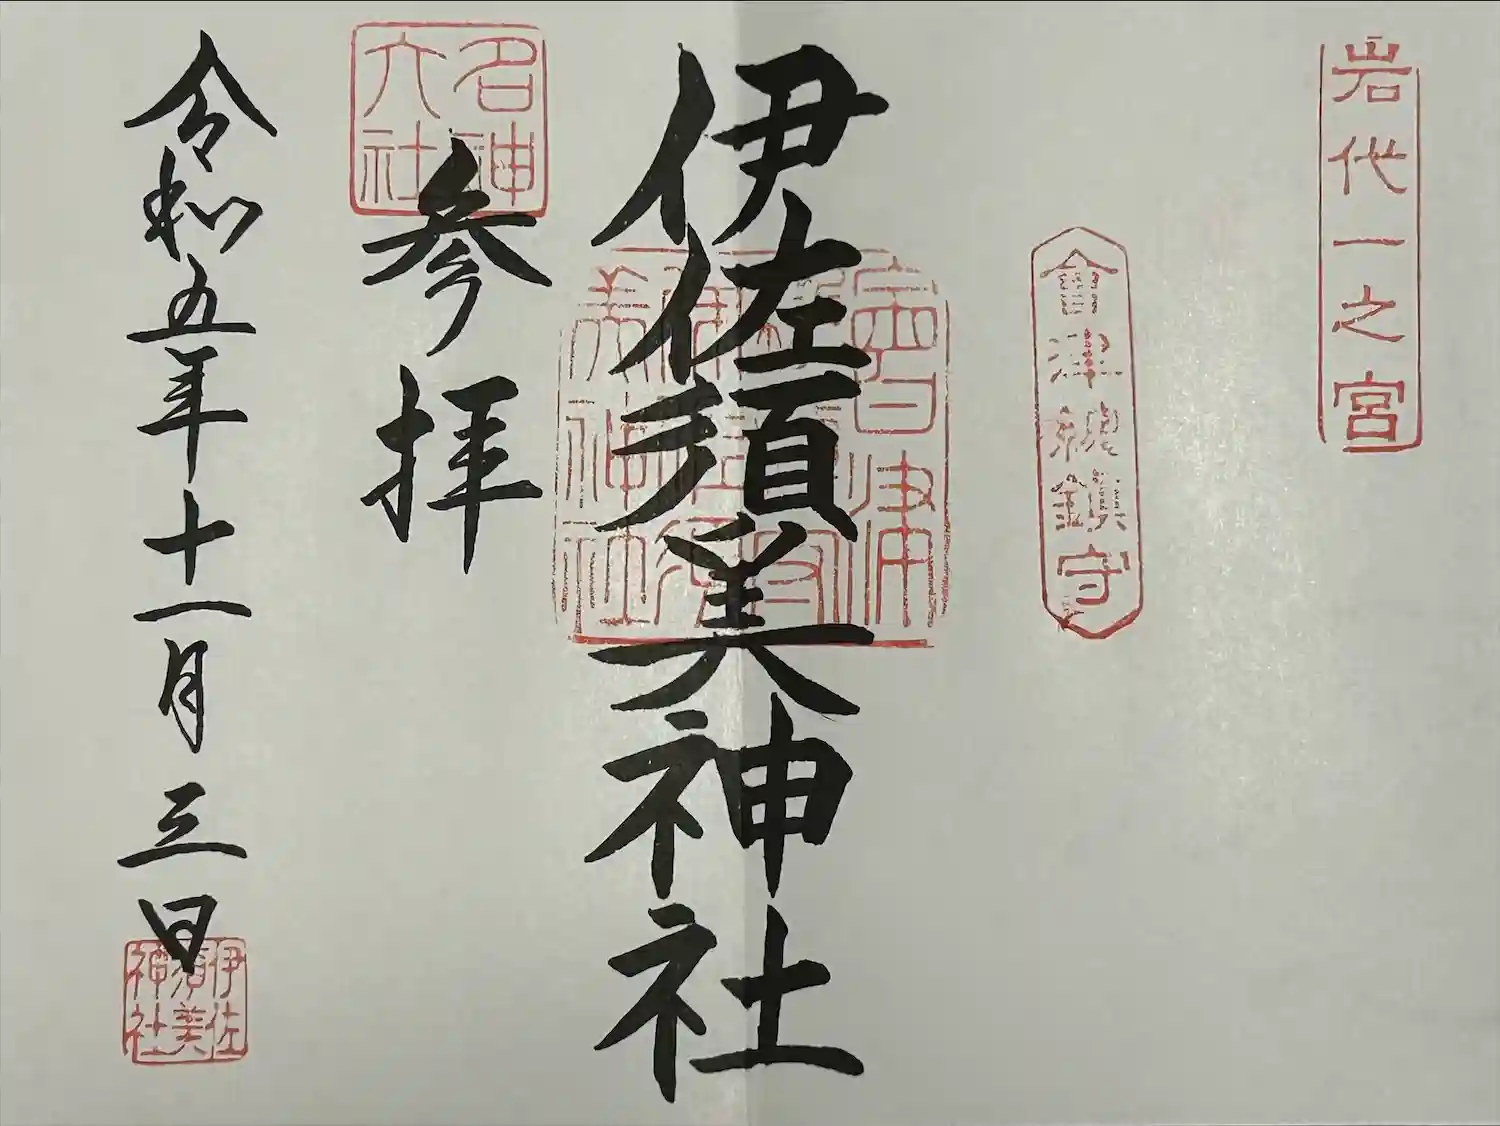 岩代一之宮
會津總鎮守
伊佐須美神社
名神大社
参拝
令和五年十一月三日
伊佐須美神社